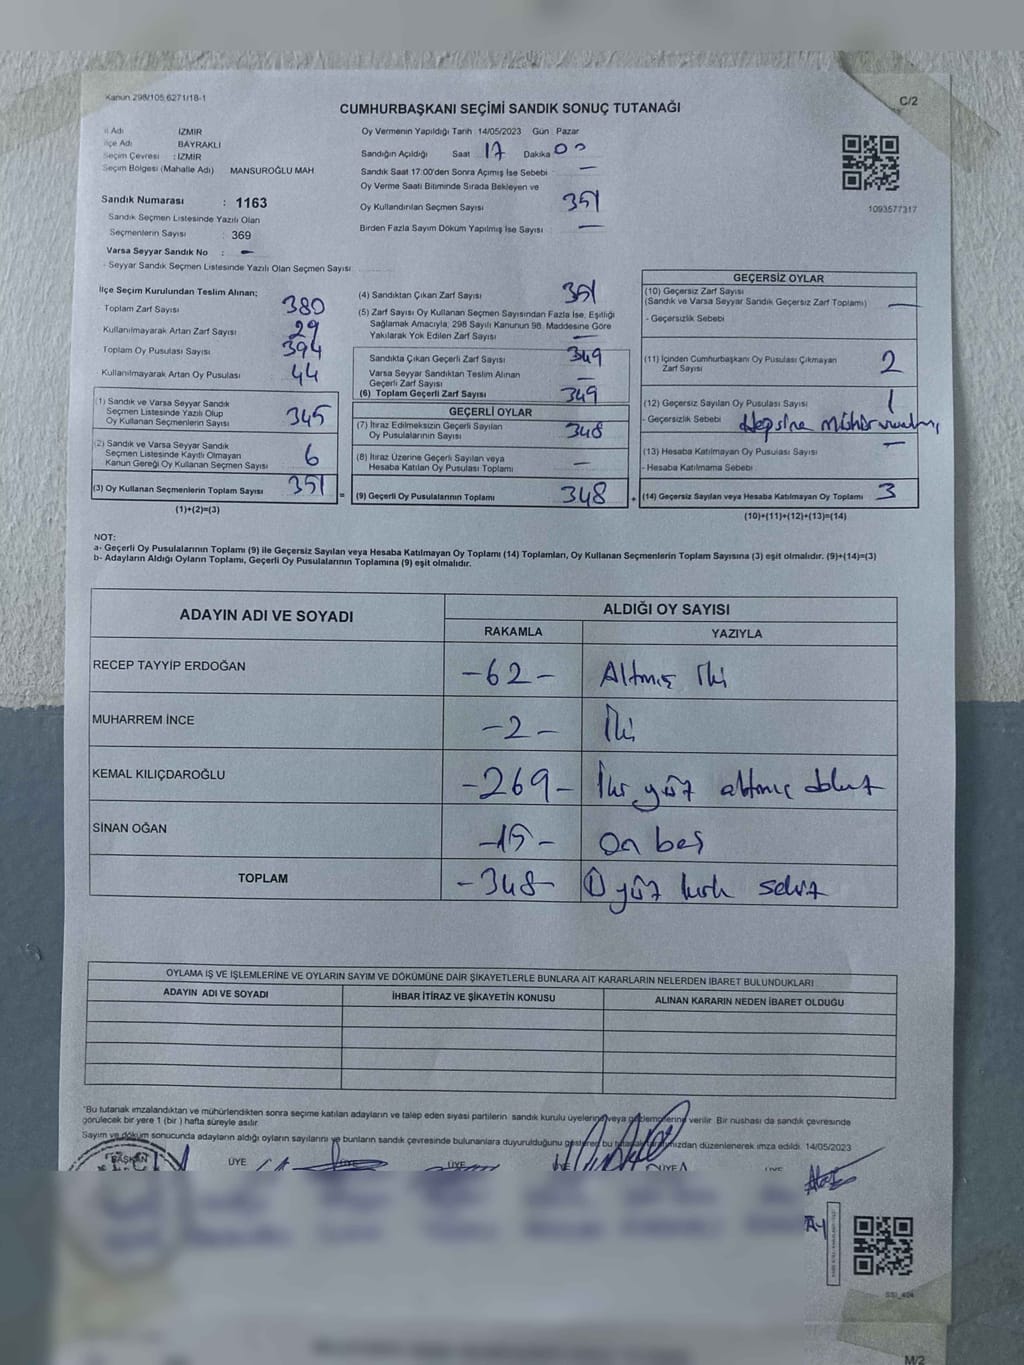 Kanun 298/105,6271/18-1
C/2
CUMHURBAŞKANI SEÇİMİ SANDIK SONUÇ TUTANAĞI
İl Adı İZMİR
İlçe Adı BAYRAKLI
Seçim Çevresi : İZMİR
Seçim Bölgesi (Mahalle Adı) MANSUROĞLU MAH
Sandık Numarası : 1163
Sandık Seçmen Listesinde Yazılı Olan
Seçmenlerin Sayısı : 369
Varsa Seyyar Sandık No : –
- Seyyar Sandık Seçmen Listesinde Yazılı Olan Seçmen Sayısı
Oy Vermenin Yapıldığı Tarih : 14/05/2023 Gün : Pazar
Sandığın Açıldığı Saat 17 Dakika 00
Sandık Saat 17:00'den Sonra Açımış İse Sebebi –
Oy Verme Saati Bitiminde Sırada Bekleyen ve
Oy Kullandırılan Seçmen Sayısı 351
Birden Fazla Sayım Döküm Yapılmış İse Sayısı –
1093577317
İlçe Seçim Kurulundan Teslim Alınan;
Toplam Zarf Sayısı 380
Kullanılmayarak Artan Zarf Sayısı 29
Toplam Oy Pusulası Sayısı 394
Kullanılmayarak Artan Oy Pusulası 44
(1) Sandık ve Varsa Seyyar Sandık
Seçmen Listesinde Yazılı Olup
Oy Kullanan Seçmenlerin Sayısı 345
(2) Sandık ve Varsa Seyyar Sandık
Seçmen Listesinde Kayıtlı Olmayan
Kanun Gereği Oy Kullanan Seçmen Sayısı 6
(3) Oy Kullanan Seçmenlerin Toplam Sayısı 351 =
(1)+(2)=(3)
(4) Sandıktan Çıkan Zarf Sayısı 351
(5) Zarf Sayısı Oy Kullanan Seçmen Sayısından Fazla İse, Eşitliği
Sağlamak Amacıyla, 298 Sayılı Kanunun 98. Maddesine Göre
Yakılarak Yok Edilen Zarf Sayısı –
Sandıkta Çıkan Geçerli Zarf Sayısı 349
Varsa Seyyar Sandıktan Teslim Alınan
Geçerli Zarf Sayısı –
(6) Toplam Geçerli Zarf Sayısı 349
GEÇERLİ OYLAR
(7) İtiraz Edilmeksizin Geçerli Sayılan
Oy Pusulalarının Sayısı 348
(8) İtiraz Üzerine Geçerli Sayılan veya
Hesaba Katılan Oy Pusulası Toplamı –
(9) Geçerli Oy Pusulalarının Toplamı 348 +
GEÇERSİZ OYLAR
(10) Geçersiz Zarf Sayısı
(Sandık ve Varsa Seyyar Sandık Geçersiz Zarf Toplamı) –
- Geçersizlik Sebebi
(11) İçinden Cumhurbaşkanı Oy Pusulası Çıkmayan
Zarf Sayısı 2
(12) Geçersiz Sayılan Oy Pusulası Sayısı 1
- Geçersizlik Sebebi Hepsine mühür
(13) Hesaba Katılmayan Oy Pusulası Sayısı –
- Hesaba Katılmama Sebebi
(14) Geçersiz Sayılan veya Hesaba Katılmayan Oy Toplamı 3
(10)+(11)+(12)+(13)=(14)
NOT:
a- Geçerli Oy Pusulalarının Toplamı (9) ile Geçersiz Sayılan veya Hesaba Katılmayan Oy Toplamı (14) Toplamları, Oy Kullanan Seçmenlerin Toplam Sayısına (3) eşit olmalıdır. (9)+(14)=(3)
b- Adayların Aldığı Oyların Toplamı, Geçerli Oy Pusulalarının Toplamına (9) eşit olmalıdır.
ADAYIN ADI VE SOYADI ALDIĞI OY SAYISI
RAKAMLA YAZIYLA
RECEP TAYYİP ERDOĞAN -62- Altmış İki
MUHARREM İNCE -2- İki
KEMAL KILIÇDAROĞLU -269- İki yüz altmış dokuz
SİNAN OĞAN -15- On beş
TOPLAM -348- Üç yüz kırk sekiz
OYLAMA İŞ VE İŞLEMLERİNE VE OYLARIN SAYIM VE DÖKÜMÜNE DAİR ŞİKAYETLERLE BUNLARA AİT KARARLARIN NELERDEN İBARET BULUNDUKLARI
ADAYIN ADI VE SOYADI İHBAR İTİRAZ VE ŞİKAYETİN KONUSU ALINAN KARARIN NEDEN İBARET OLDUĞU
*Bu tutanak imzalandıktan ve mühürlendikten sonra seçime katılan adayların ve talep eden siyasi partilerin sandık kurulu üyelerine veya gözlemcilerine verilir. Bir nushası da sandık çevresinde
görülecek bir yere 1 (bir ) hafta süreyle asılır.
Sayım ve döküm sonucunda adayların aldığı oyların sayılarını ve bunların sandık çevresinde bulunanlara duyurulduğunu gösteren bu tutanak düzenlenerek imza edildi. 14/05/2023
BAŞKAN ÜYE ÜYE ÜYE ÜYE ÜYE ÜYE
A-1
SSİ_404
M/2